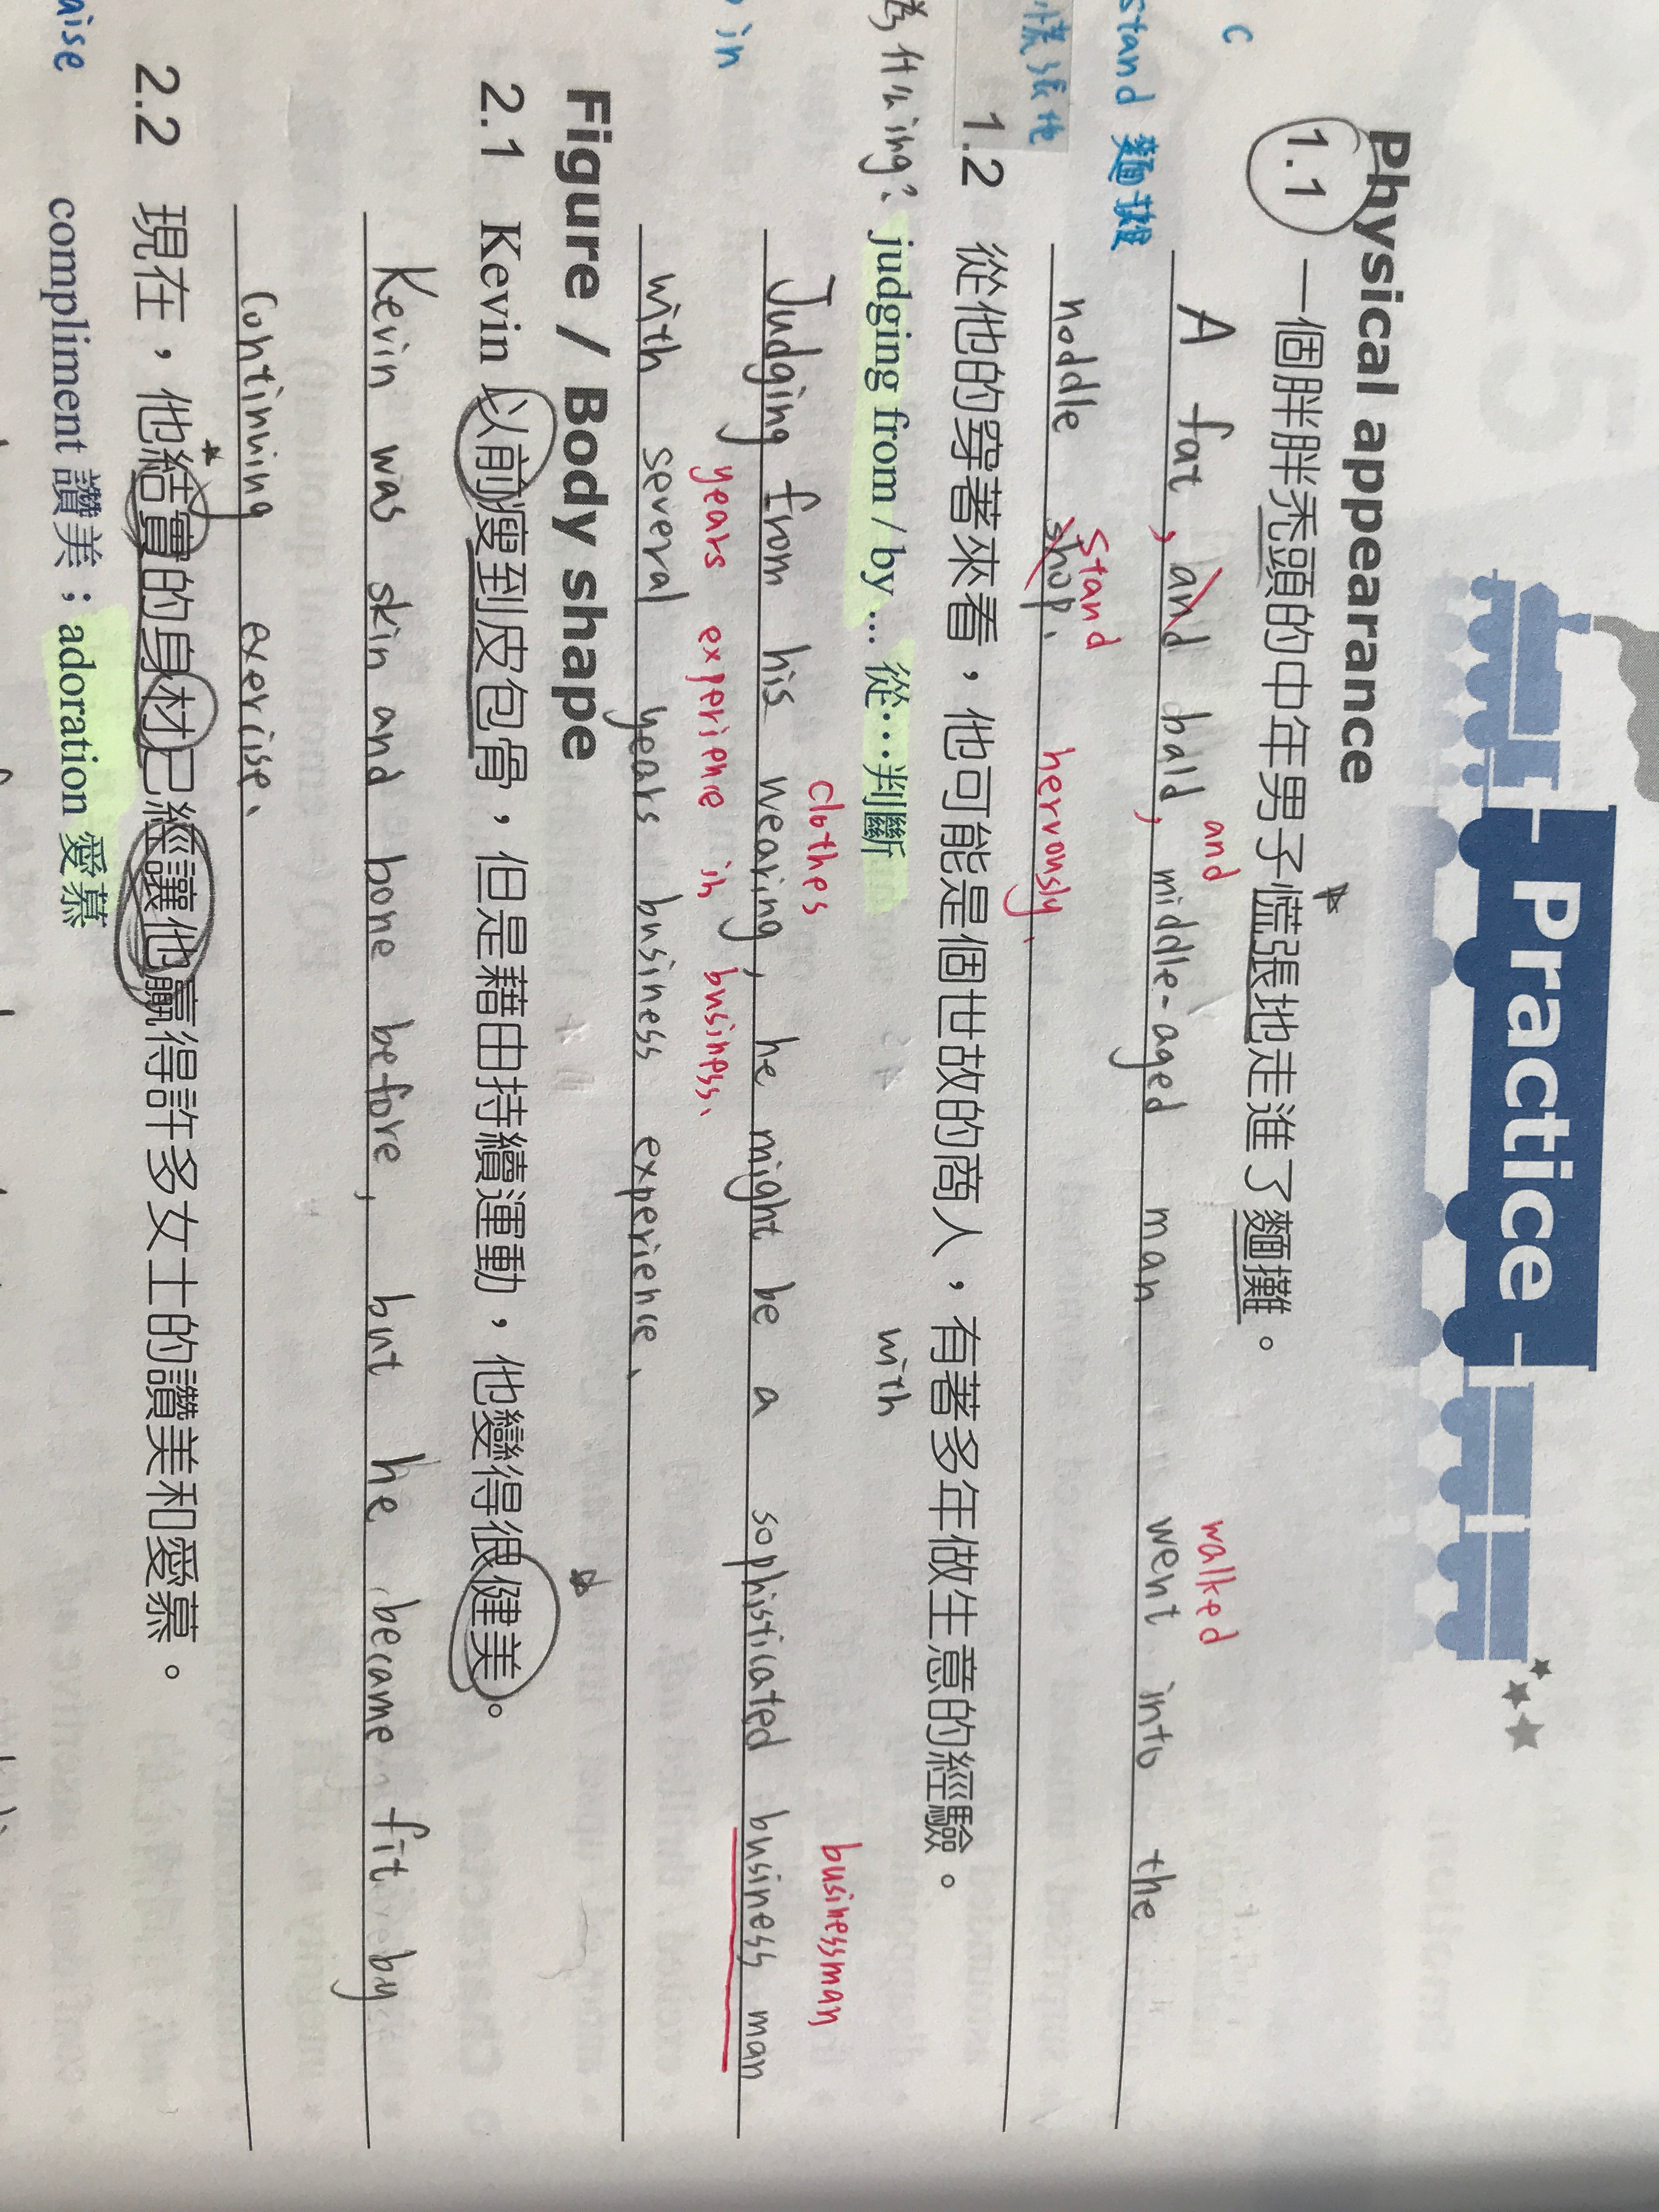 Practice
Physical appearance
1.1 一個胖胖禿頭的中年男子慌張地走進了麵攤。
and walked
A fat, and bald, middle-aged man went into the
stand 麵攤
stand
noddle shop. nervously.
慌張地
1.2 從他的穿著來看，他可能是個世故的商人，有著多年做生意的經驗。
with
為什么ing? judging from / by ... 從…判斷
clothes businessman
Judging from his wearing, he might be a sophisticated business man
in
years experience in business.
with several years business experience.
Figure / Body shape
2.1 Kevin 以前瘦到皮包骨，但是藉由持續運動，他變得很健美。
Kevin was skin and bone before, but he became fit by
Continuing exercise.
2.2 現在，他結實的身材已經讓他贏得許多女士的讚美和愛慕。
compliment 讚美；adoration 愛慕